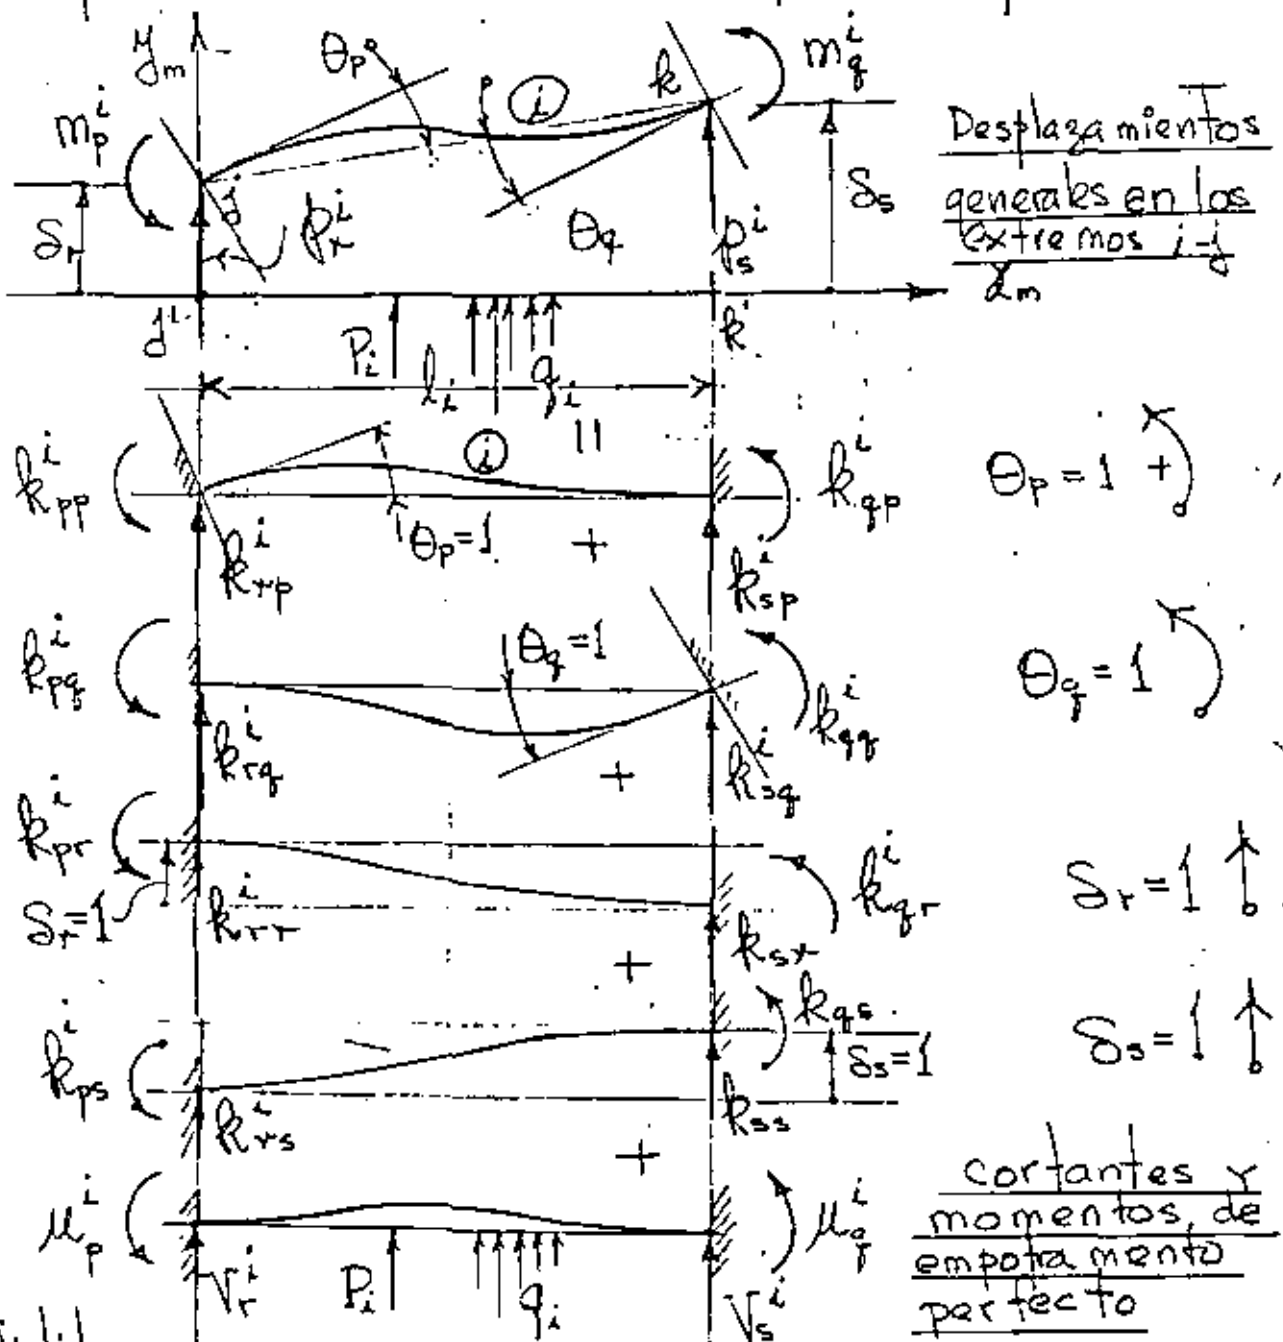 y_m
θ_p
i
k
m_q^i
m_p^i
Desplazamientos
generales en los
extremos i-j
δ_r
j
p_r^i
θ_q
p_s^i
δ_s
x_m
j'
P_i
l_i
q_i
k'
k_pp^i
i
k_qp^i
θ_p=1 +
θ_p=1
k_rp^i
+
k_sp^i
k_pq^i
θ_q=1
θ_q=1
k_rq^i
k_qq^i
+
k_sq^i
k_pr^i
δ_r=1
k_rr^i
k_qr^i
δ_r=1
k_sr^i
+
k_ps^i
k_qs
δ_s=1
δ_s=1
k_rs^i
k_ss
+
μ_p^i
μ_q^i
cortantes y
momentos de
empotramento
perfecto
V_r^i
P_i
q_i
V_s^i